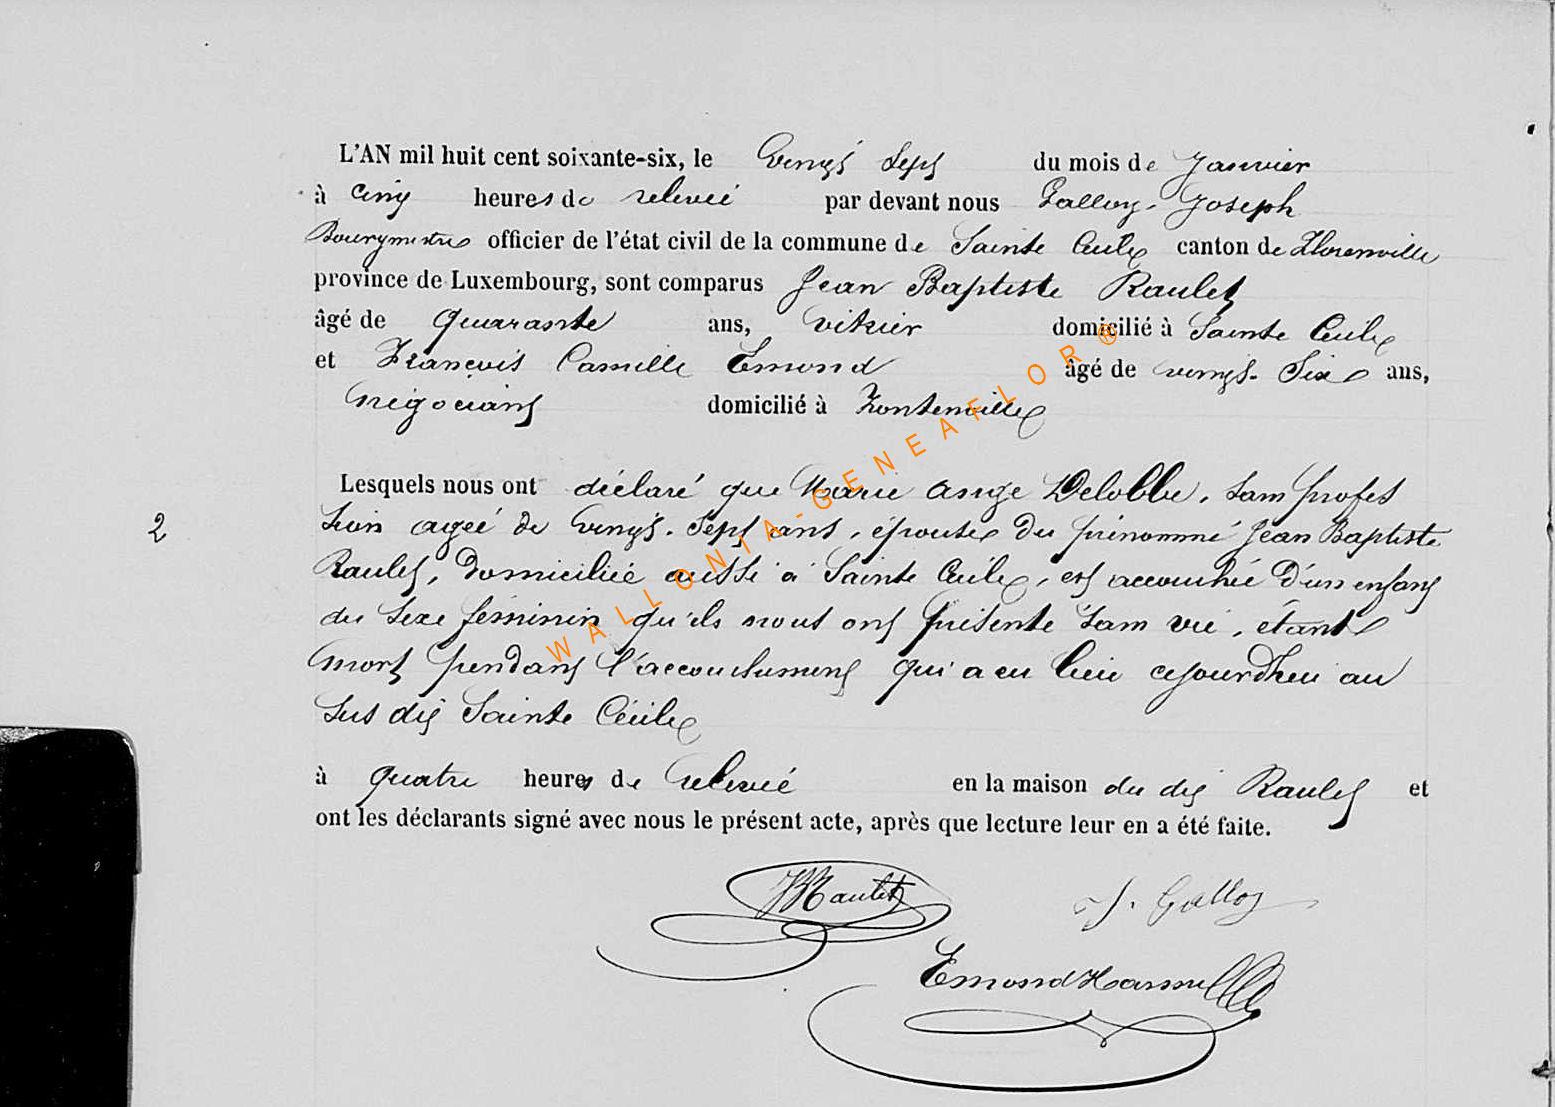 L'AN mil huit cent soixante-six, le vingt sept du mois de Janvier
à cinq heures de relevée par devant nous Galloy Joseph
Bourgmestre officier de l'état civil de la commune de Sainte Cécile canton de Florenville
province de Luxembourg, sont comparus Jean Baptiste Raulet
âgé de quarante ans, vitrier domicilié à Sainte Cécile
et François Camille Emond âgé de vingt-six ans,
Négociant domicilié à Fontenoille
Lesquels nous ont déclaré que Marie Ange Delobbe, sans profes
2 sion agée de vingt-sept ans, épouse du prénommé Jean Baptiste
Raulet, domiciliée aussi à Sainte Cécile, est accouchée d'un enfant
du sexe féminin qu'ils nous ont présenté sans vie, étant
mort pendant l'accouchement qui a eu lieu cejourdhui au
sus dit Sainte Cécile
à quatre heures de relevée en la maison du dit Raulet et
ont les déclarants signé avec nous le présent acte, après que lecture leur en a été faite.
JBRaulet J. Galloy
Emond
WALLONIA-GENEAFLOR®